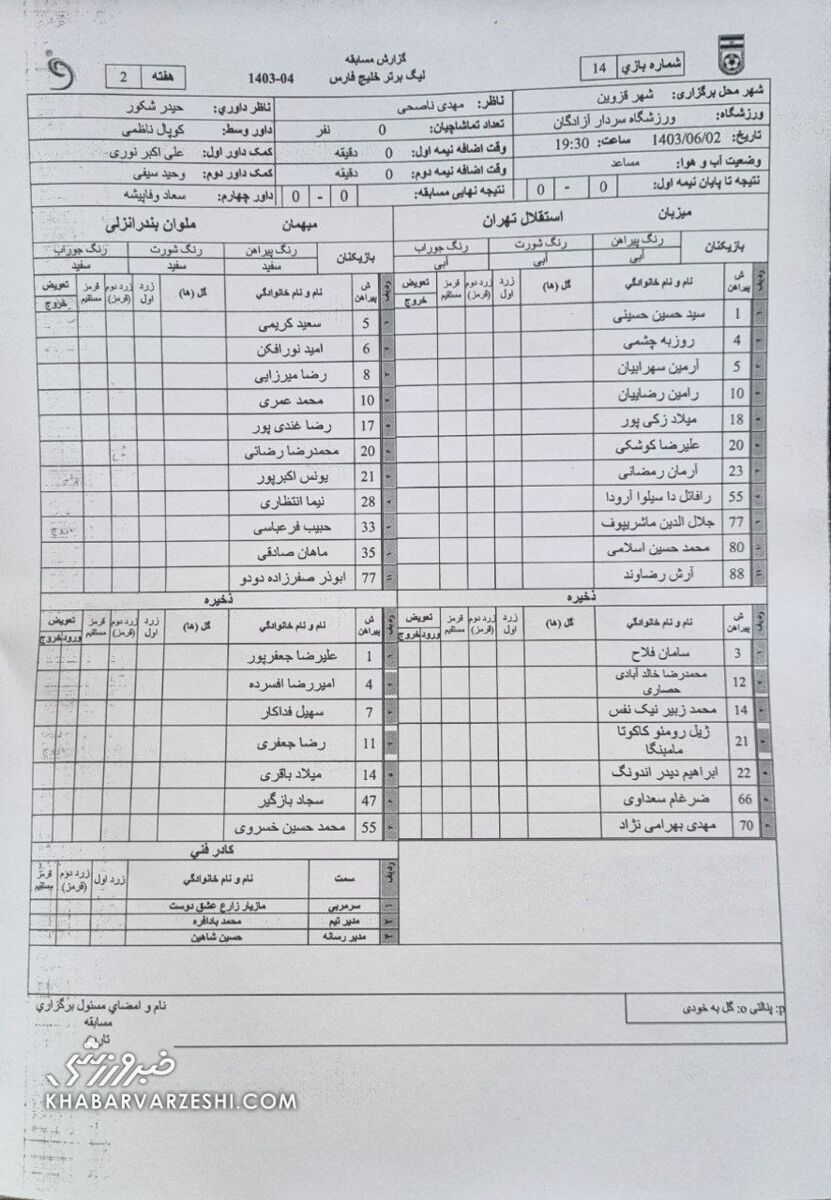 گزارش مسابقه
لیگ برتر خلیج فارس
1403-04
شماره بازي 14
هفته 2
شهر محل برگزاری: شهر قزوین
ورزشگاه: ورزشگاه سردار آزادگان
تاریخ: 1403/06/02 ساعت: 19:30
وضعیت آب و هوا: مساعد
نتیجه تا پایان نیمه اول: 0 - 0
ناظر: مهدی ناصحی
تعداد تماشاچیان: 0 نفر
وقت اضافه نیمه اول: 0 دقیقه
وقت اضافه نیمه دوم: 0 دقیقه
نتیجه نهایی مسابقه: 0 - 0
ناظر داوري: حیدر شکور
داور وسط: کوپال ناظمی
کمک داور اول: علی اکبر نوری
کمک داور دوم: وحید سیفی
داور چهارم: سعاد وفاپیشه
میزبان استقلال تهران
بازیکنان رنگ پیراهن رنگ شورت رنگ جوراب
آبی آبی آبی
ردیف ش پیراهن نام و نام خانوادگي گل (ها) زرد اول زرد دوم (قرمز) قرمز مستقیم تعویض خروج
1 سید حسین حسینی
4 روزبه چشمی
5 آرمین سهرابیان
10 رامین رضاییان
18 میلاد زکی پور
20 علیرضا کوشکی
23 آرمان رمضانی
55 رافائل دا سیلوا آرودا
77 جلال الدین ماشریپوف
80 محمد حسین اسلامی
88 آرش رضاوند
ذخیره
ردیف ش پیراهن نام و نام خانوادگي گل (ها) زرد اول زرد دوم (قرمز) قرمز مستقیم تعویض ورود خروج
3 سامان فلاح
12 محمدرضا خالد آبادی حصاری
14 محمد زبیر نیک نفس
21 ژیل رومئو کاکوتا مامبنگا
22 ابراهیم دیدر اندونگ
66 ضرغام سعداوی
70 مهدی بهرامی نژاد
میهمان ملوان بندرانزلی
بازیکنان رنگ پیراهن رنگ شورت رنگ جوراب
سفید سفید سفید
ردیف ش پیراهن نام و نام خانوادگي گل (ها) زرد اول زرد دوم (قرمز) قرمز مستقیم تعویض خروج
5 سعید کریمی
6 امید نورافکن
8 رضا میرزایی
10 محمد عمری
17 رضا غندی پور
20 محمدرضا رضائی
21 یونس اکبرپور
28 نیما انتظاری
33 حبیب فرعباسی
35 ماهان صادقی
77 ابوذر صفرزاده دودو
ذخیره
ردیف ش پیراهن نام و نام خانوادگي گل (ها) زرد اول زرد دوم (قرمز) قرمز مستقیم تعویض ورود خروج
1 علیرضا جعفرپور
4 امیررضا افسرده
7 سهیل فداکار
11 رضا جعفری
14 میلاد باقری
47 سجاد بازگیر
55 محمد حسین خسروی
کادر فني
ردیف سمت نام و نام خانوادگي زرد اول زرد دوم (قرمز) قرمز مستقیم
1 سرمربی مازیار زارع عشق دوست
2 مدیر تیم محمد بادافره
3 مدیر رسانه حسین شاهین
p: پنالتی o: گل به خودی
نام و امضاي مسئول برگزاري
مسابقه
تاریخ
خبرورزشی
KHABARVARZESHI.COM